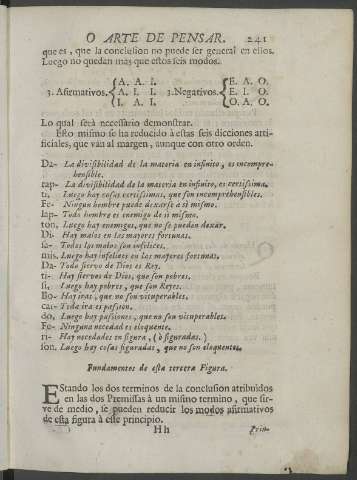 O ARTE DE PENSAR. 241
que es, que la conclusion no puede ser general en ellos.
Luego no quedan mas que estos seis modos.
A. A. I. E. A. O.
3. Afirmativos. A. I. I. 3. Negativos. E. I. O.
I. A. I. O. A. O.
Lo qual será necessario demonstrar.
Esto mismo se ha reducido à estas seis dicciones arti-
ficiales, que ván al margen, aunque con otro orden.
Da- La divisibilidad de la materia en infinito, es incompre-
hensible.
rap- La divisibilidad de la materia en infinito, es certissima.
ti. Luego hay cosas certissimas, que son incomprehensibles.
Fe- Ningun hombre puede dexarse à sí mismo.
lap- Todo hombre es enemigo de sí mismo.
ton. Luego hay enemigos, que no se pueden dexar.
Di- Hay malos en las mayores fortunas.
sa- Todos los malos son infelices.
mis. Luego hay infelices en las mayores fortunas.
Da- Todo siervo de Dios es Rey.
ti- Hay siervos de Dios, que son pobres.
si. Luego hay pobres, que son Reyes.
Bo- Hay iras, que no son vituperables.
car- Toda ira es passion.
do. Luego hay passiones, que no son vituperables.
Fe- Ninguna necedad es eloquente.
ri- Hay necedades en figura, (ò figuradas.)
son. Luego hay cosas figuradas, que no son eloquentes.
Fundamentos de esta tercera Figura.
Estando los dos terminos de la conclusion atribuidos
en las dos Premissas à un mismo termino, que sir-
ve de medio, se pueden reducir los modos afirmativos
de esta figura à este principio.
Hh Prin-